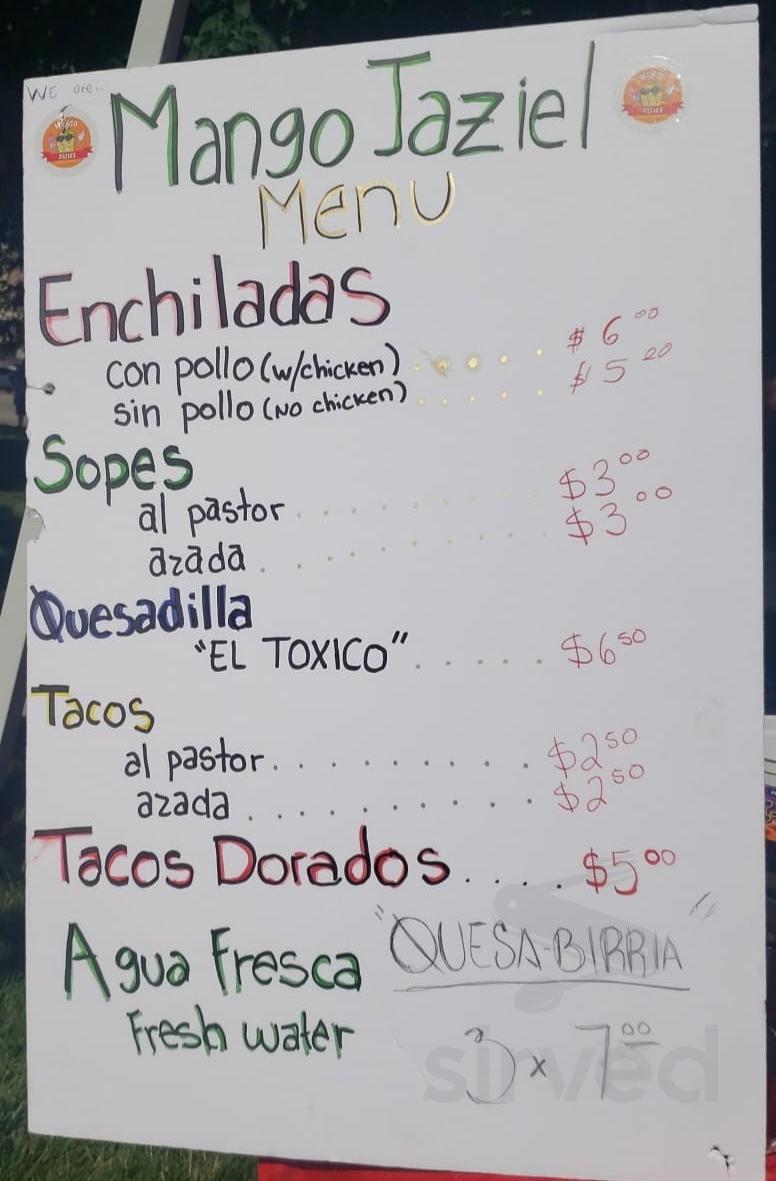 WE are..
Mango Jaziel
Menu
Enchiladas
con pollo (w/chicken) . . . . $ 6 00
sin pollo (No chicken) . . . . $ 5 00
Sopes
al pastor . . . . . . . $3 00
azada . . . . . . . . $3 00
Quesadilla
"EL TOXICO" . . . . . $6 50
Tacos
al pastor . . . . . . . . . $2 50
azada . . . . . . . . . $2 50
Tacos Dorados . . . . $5 00
Agua Fresca
Fresh water
"QUESA-BIRRIA"
3 x 7 00
sirved